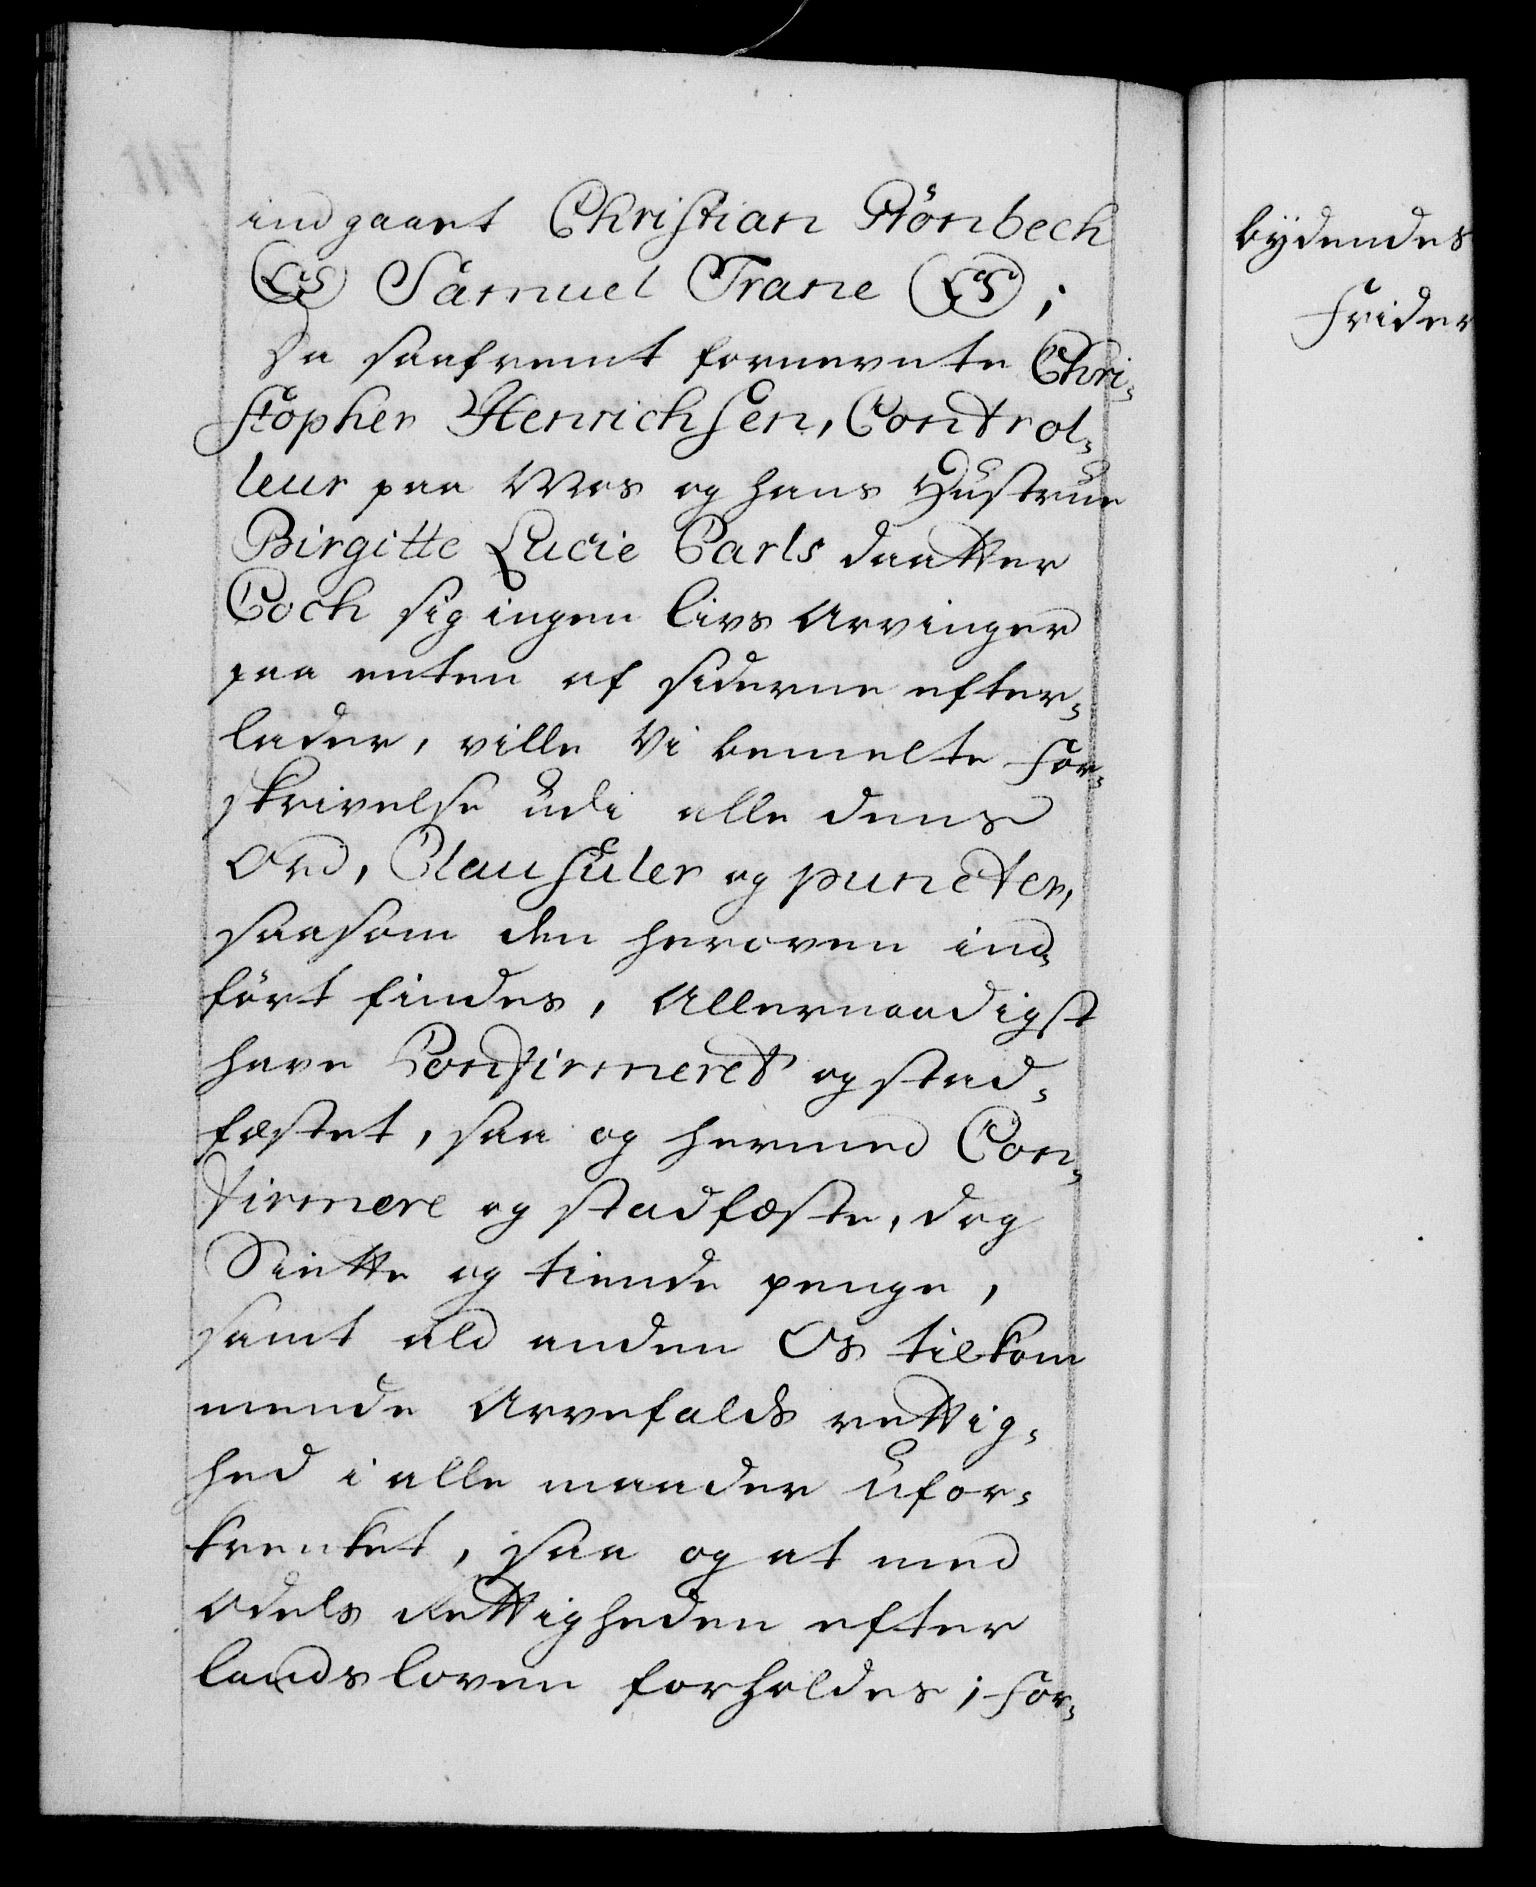 indgaaet Christian Rönbech
(LS) Samuel Trane (LS);
Da saafremt fornevnte Chri-
stopher Henrichsen, Control-
leur paa Mos og hans Hustrue
Birgitte Lucie Carls daatter
Coch sig ingen livs Arvinger
paa enten af siderne efter-
lader, ville Vi bemelte for-
skrivelse udi alle dens
Ord, Clausuler og puncter,
saasom den heroven ind-
fört findes, Allernaadigst
have Confirmeret og stad-
fæstet, saa og hermed Con-
firmere og stadfæste, dog
Siette og tiende penge,
samt ald anden Os tilkom
mende Arvefalds rettig-
hed i alle maader ufor-
krenket, saa og at med
Odels Rettigheden efter
landsloven forholdes; for-
bÿdendes
Frider